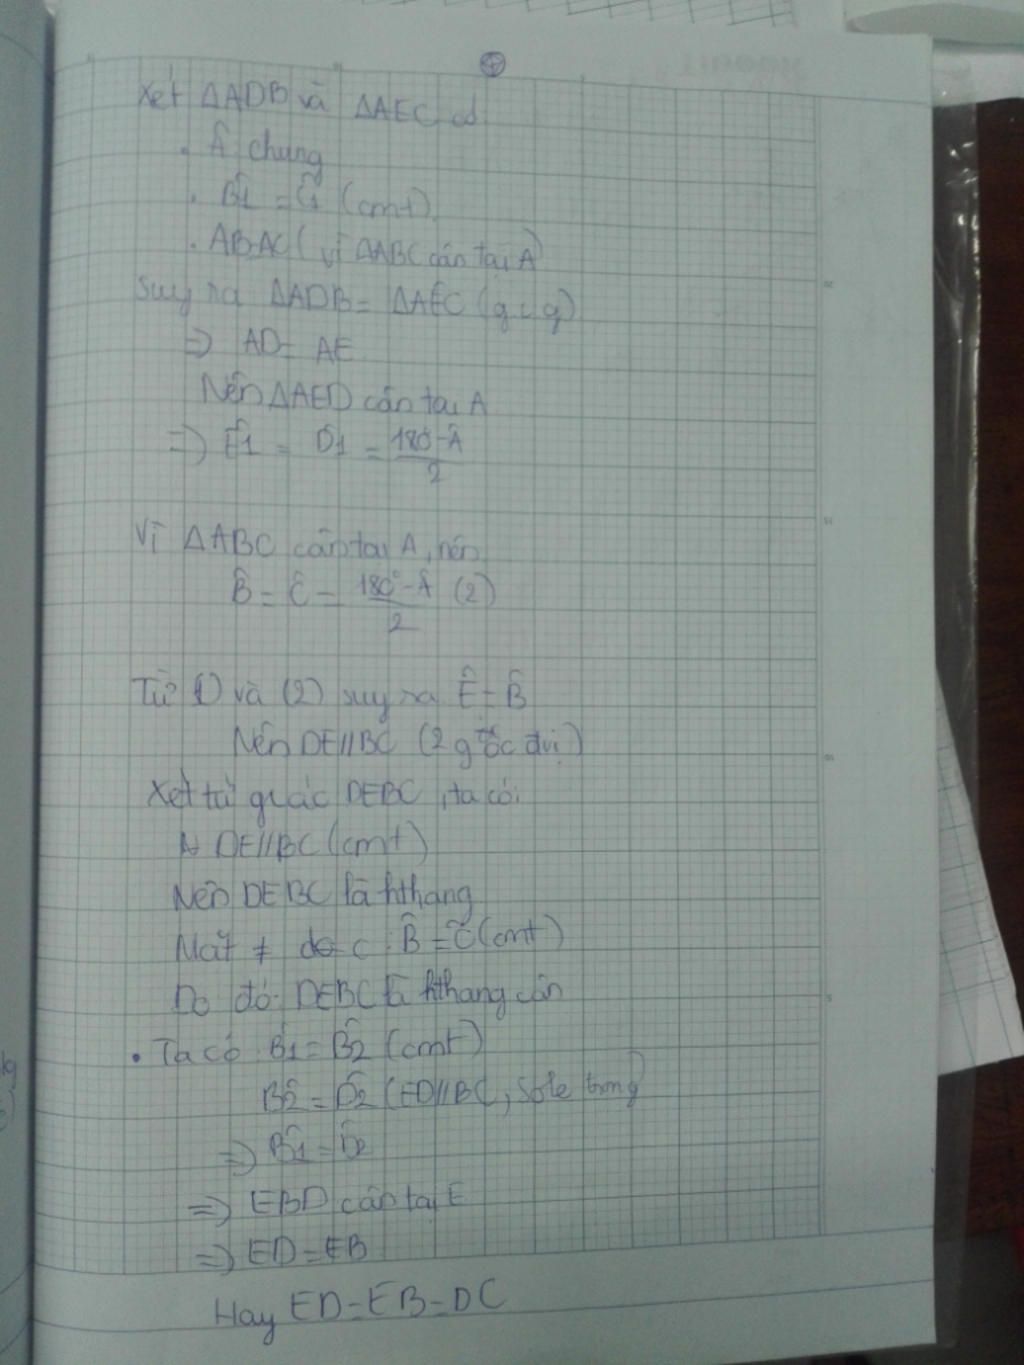 Xét ΔADB và ΔAEC có
. Â chung
. B̂1 = Ĉ1 (cmt).
. AB=AC (vì ΔABC cân tại A)
Suy ra ΔADB = ΔAEC (g.c.g)
=> AD = AE
Nên ΔAED cân tại A
=> Ê1 = D̂1 = 180°-Â / 2
Vì ΔABC cân tại A, nên
B̂ = Ĉ = 180°-Â / 2 (2)
Từ (1) và (2) suy ra Ê = B̂
Nên DE//BC (2 góc đvị)
Xét tứ giác DEBC, ta có:
DE//BC (cmt)
Nên DEBC là hthang
Mặt ≠ do c B̂ = Ĉ (cmt)
Do đó: DEBC là hthang cân
• Ta có B̂1 = B̂2 (cmt)
B̂2 = D̂2 (ED//BC, sole trong)
=> B̂1 = D̂2
=> EBD cân tại E
=> ED = EB
Hay ED = EB = DC